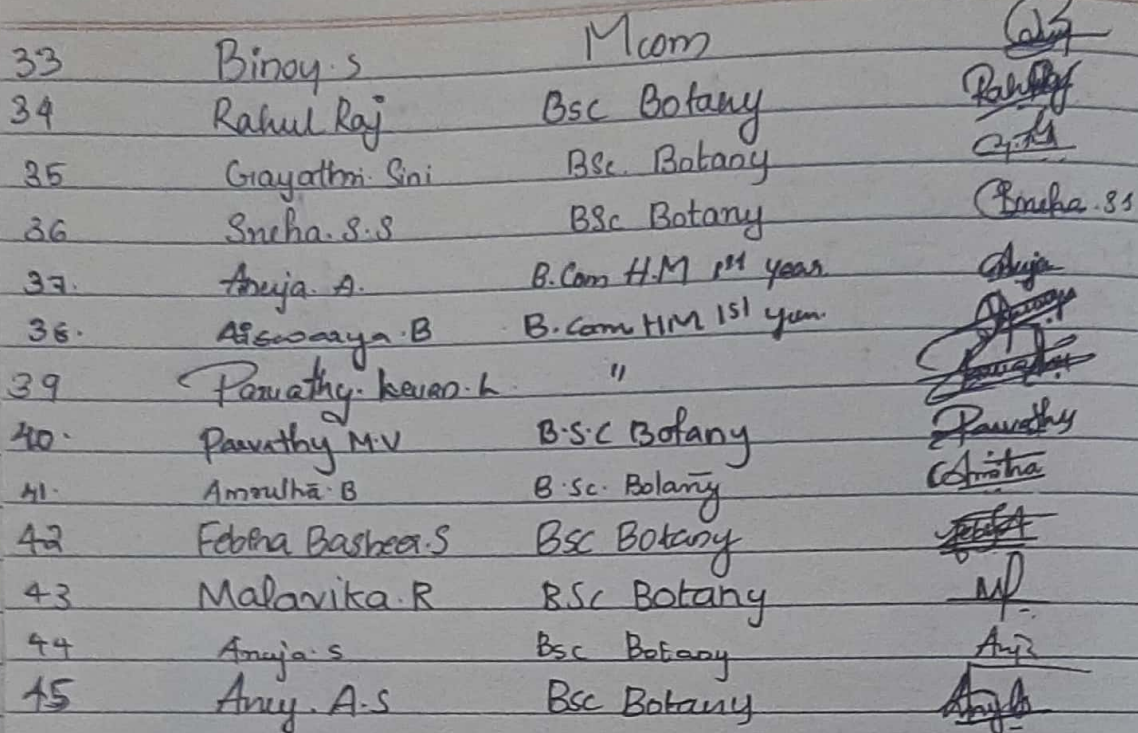 33 Binoy.s Mcom
34 Rahul Raj Bsc Botany Rahul Raj
35 Gayathri. Sini BSc. Botany
36 Sneha.S.S BSc Botany Sneha.SS
37. Anuja. A. B.Com H.M 1st year Anuja
38. Aiswarya.B B.Com HM 1st year
39 Parvathy. L "
40. Parvathy M.V B.S.C Botany Parvathy
41. Amrutha.B B.Sc. Botany Amrutha
42 Febina Basheer.S BSc Botany
43 Malavika.R BSc Botany
44 Anuja.s Bsc Botany
45 A.S Bsc Botany